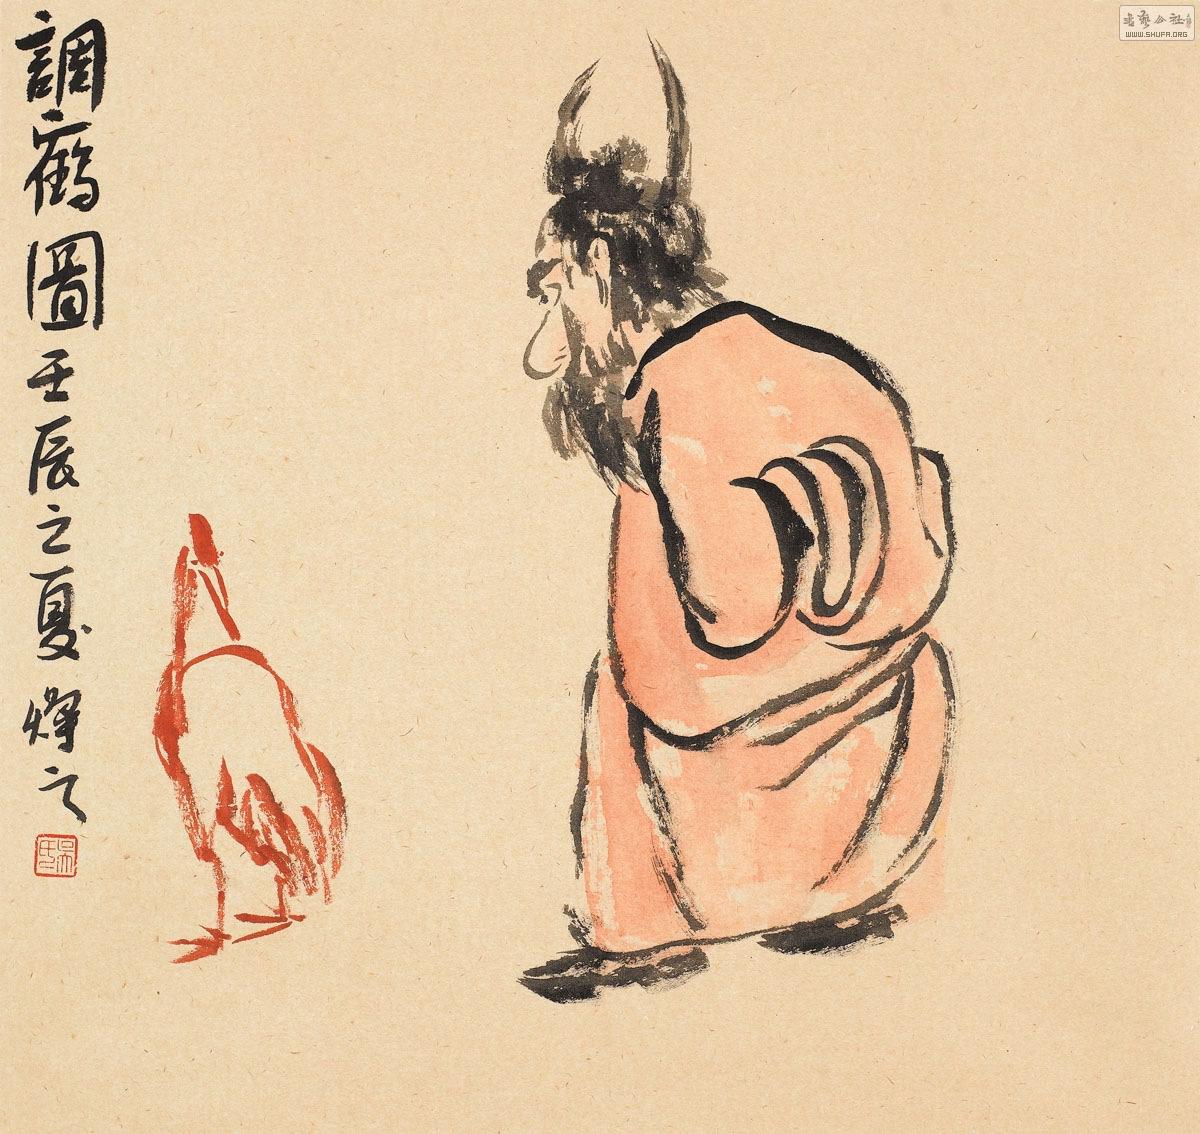 調鶴圖壬辰之夏燁之
吳氏
书艺公社
WWW.SHUFA.ORG